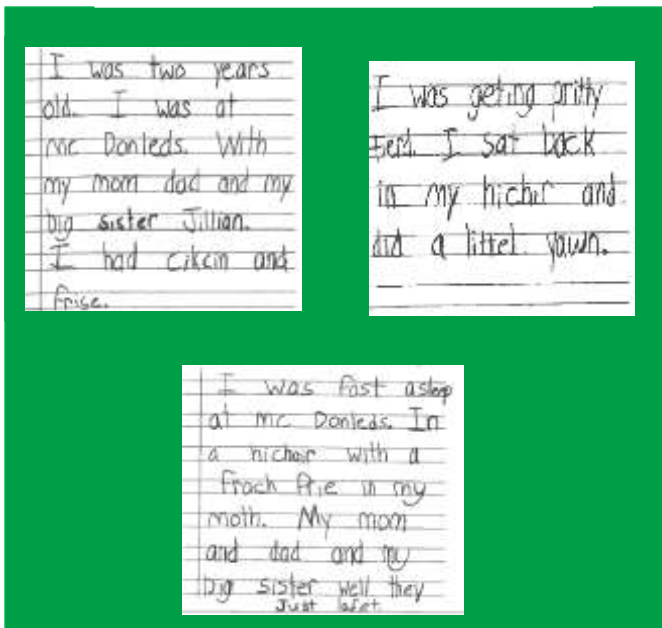 I was two years
old. I was at
mc Donleds. With
my mom dad and my
big sister Jillian.
I had cikcin and
frise.
I was geting pritty
terd. I sat back
in my hicher and
did a littel yawn.
I was fast asleep
at mc Donleds. In
a hicher with a
frach frie in my
moth. My mom
and dad and my
big sister well they
Just lafet.